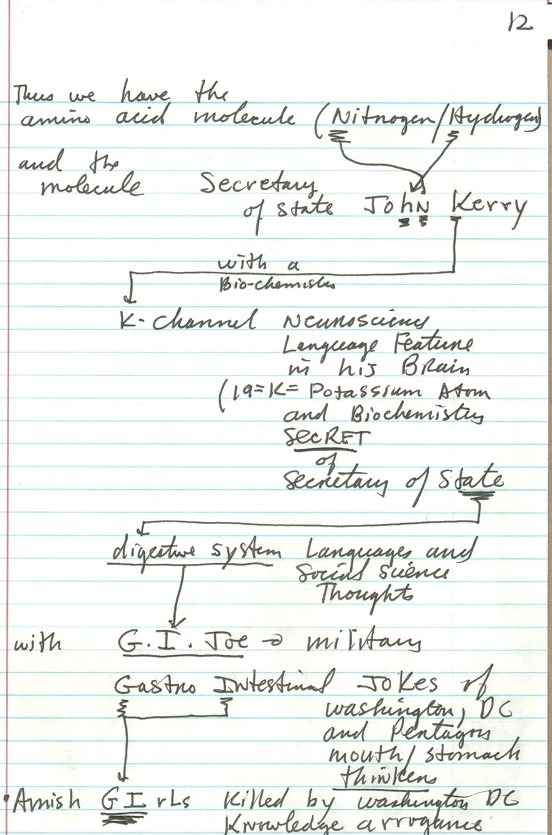 12
Thus we have the
amino acid molecule (Nitrogen/Hydrogen)
and the
molecule Secretary
of State JohN Kerry
with a
Bio-chemistry
K-channel Neuroscience
Language Feature
in his Brain
(19=K= Potassium Atom
and Biochemistry
SECRET
of
Secretary of State
digestive system Languages and
Social Science
Thoughts
with G.I. Joe → military
Gastro Intestinal Jokes of
Washington, DC
and Pentagon
mouth/stomach
thinkers
Amish GIrLs Killed by Washington DC
Knowledge arrogance